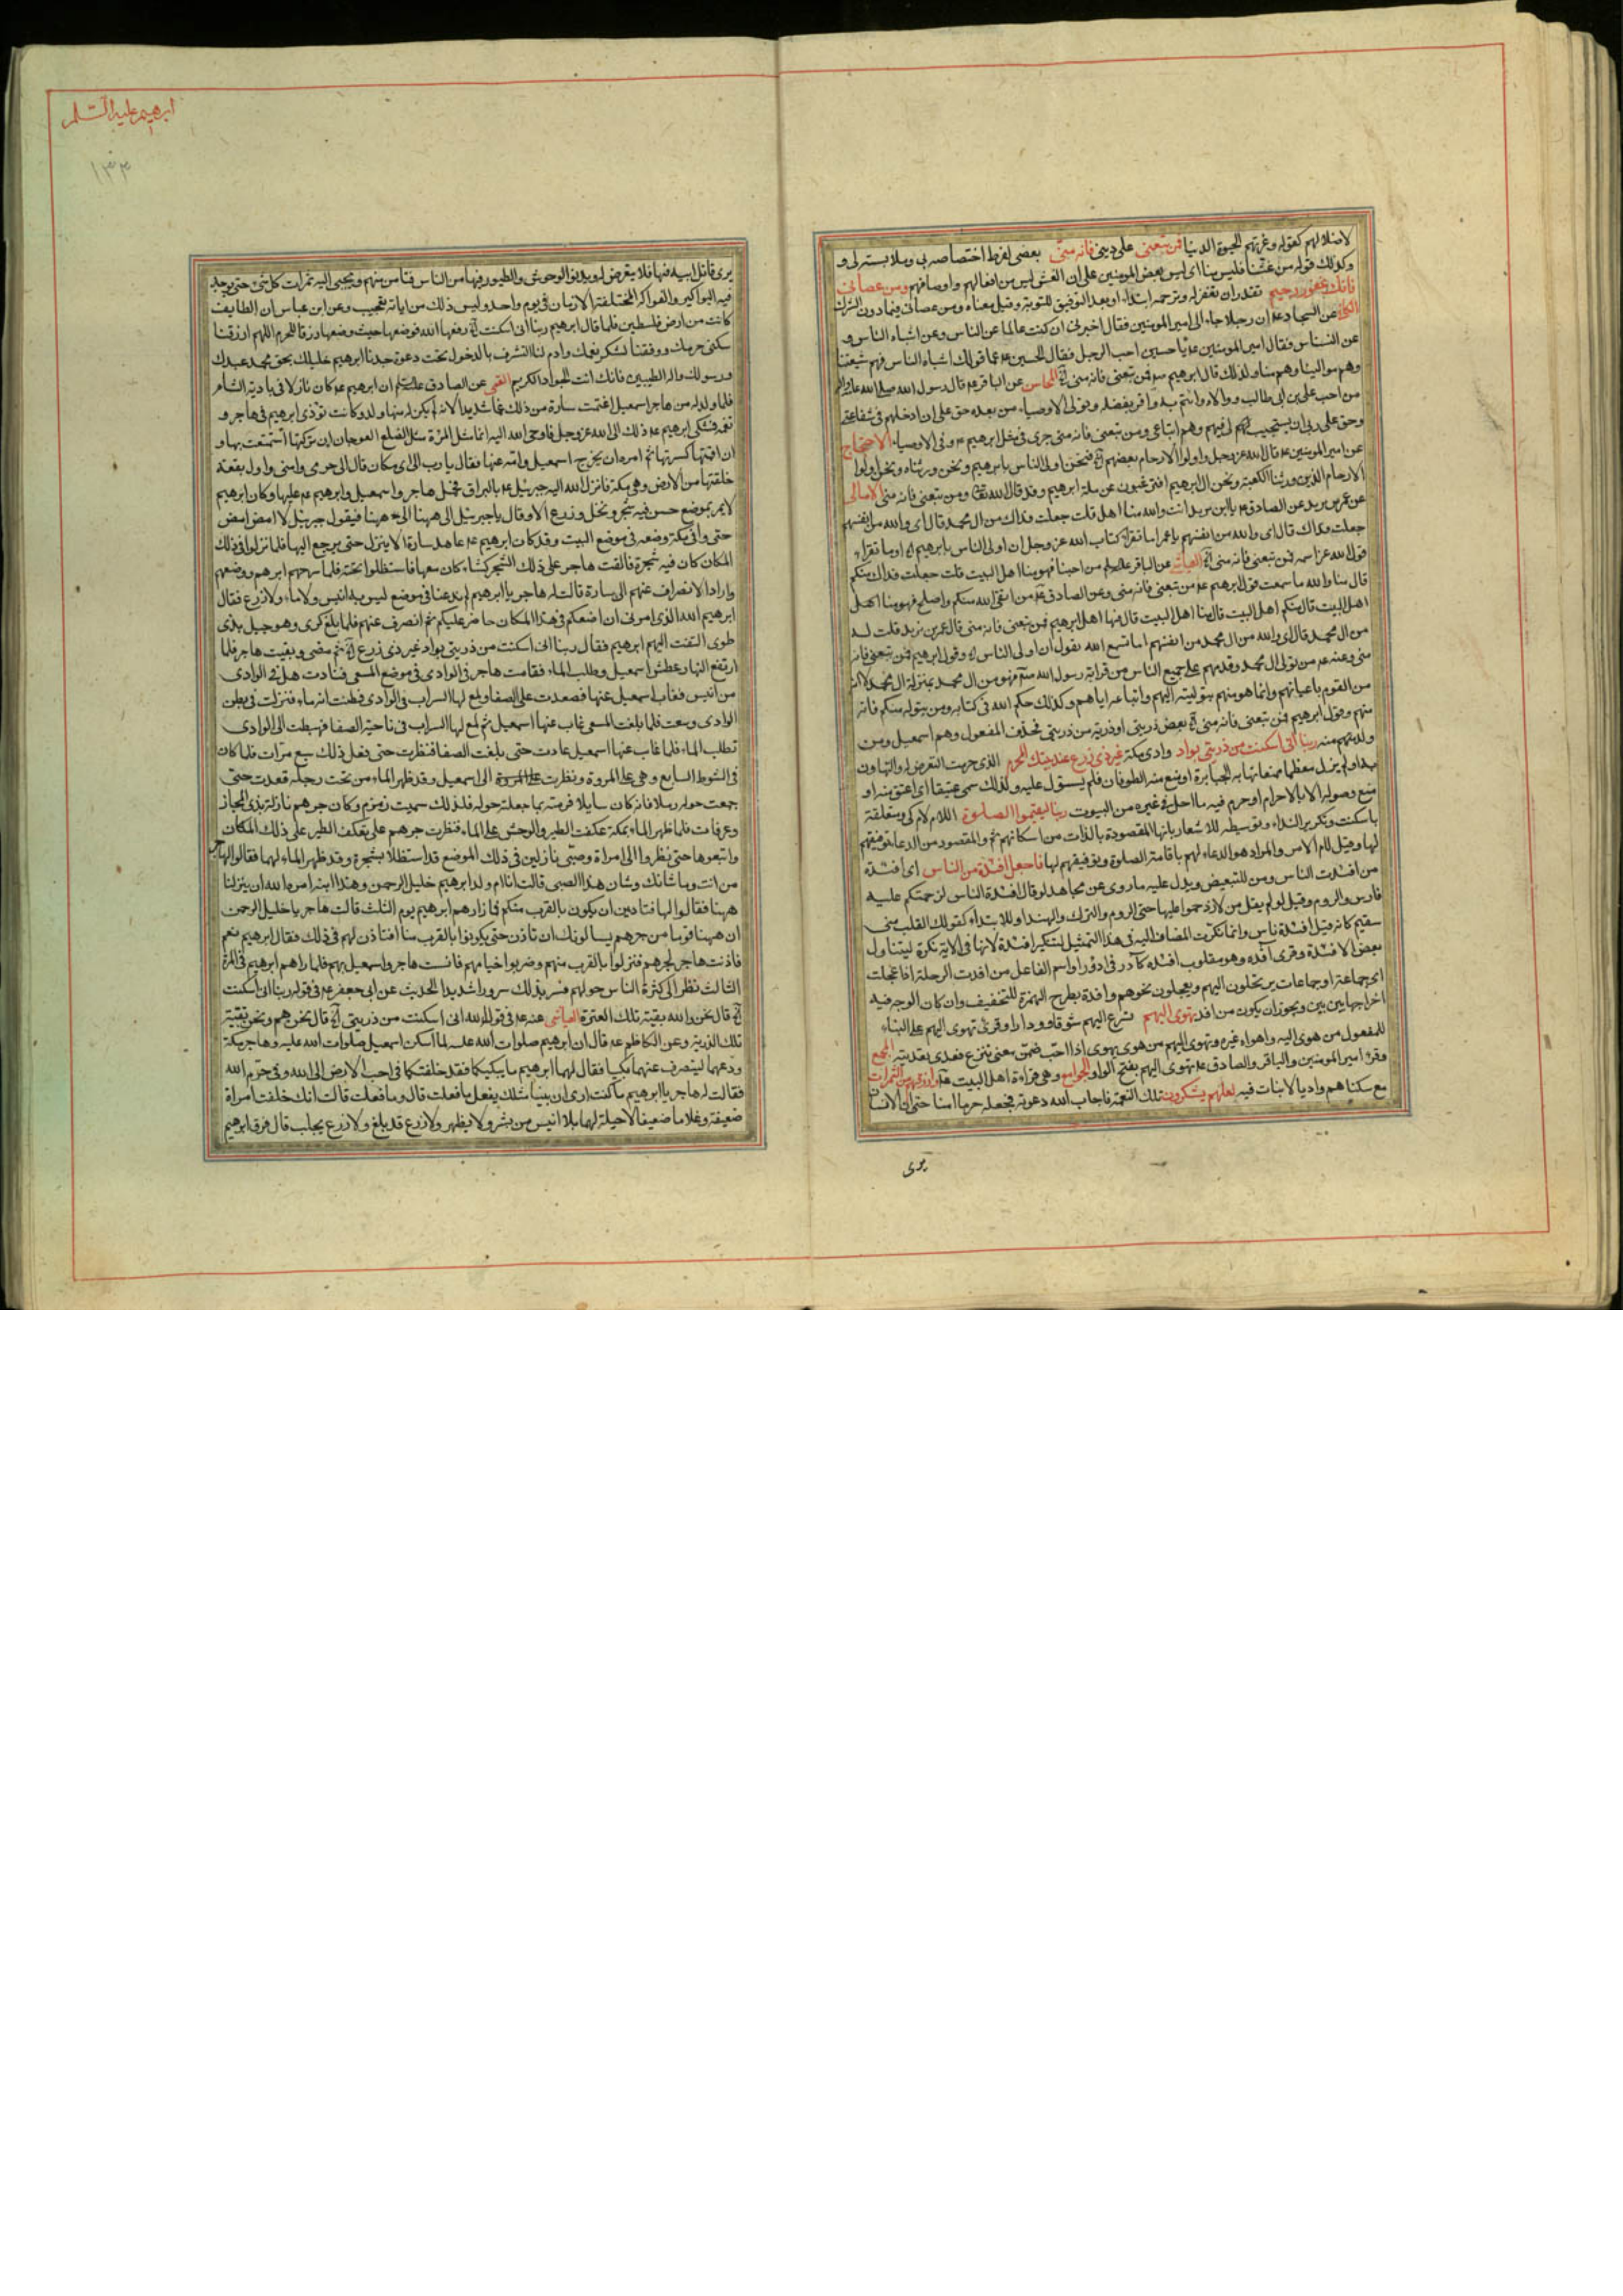 لاضلالهم كقوله وغرتهم الحيوة الدنيا فمن تبعنى على دينى فانه منى بعضى لفرط اختصاصه بى وملابسته لى و
وكذلك قوله من غشنا فليس منا اى ليس بعض المومنين على ان الغش ليس من افعالهم واوصافهم ومن عصانى
فانك غفور رحيم تقدر ان تغفر له وترحمه ابتداء او بعد التوفيق للتوبة وقيل معناه ومن عصانى فيما دون الشرك
الكافى عن السجاد عم ان رجلا جاء الى امير المومنين فقال اخبرنى ان كنت عالما عن الناس وعن اشباه الناس و
عن النسناس فقال امير المومنين عم يا حسين احب الرجل فقال الحسين عم اما قولك اشباه الناس فهم شيعتنا
وهم موالينا وهم منا ولذلك قال ابرهيم عم فمن تبعنى فانه منى المحاسن عن الباقر عم قال رسول الله صلى الله عليه واله
من احب على بن ابى طالب ووالاه وائتم به واقر بفضله وتولى الاوصياء من بعده حق على ان ادخلهم فى شفاعتى
وحق على ربى ان يستجيب لهم فيهم وهم اتباعى ومن تبعنى فانه منى جرى فى مثل ابرهيم عم وفى الاوصياء الاحتجاج
عن امير المومنين عم قال الله عز وجل واولوا الارحام بعضهم فنحن اولى الناس بابرهيم ونحن ورثناه ونحن اولوا
الارحام الذين ورثنا الكعبة ونحن ال ابرهيم افترغبون عن ملة ابرهيم وقد قال الله تعا ومن تبعنى فانه منى الامالى
عن عمر بن يزيد عن الصادق عم يا ابن يزيد انت والله منا اهل قلت جعلت فداك من ال محمد قال اى والله من انفسهم
جعلت فداك قال اى والله من انفسهم يا عمر اما تقراء كتاب الله عز وجل ان اولى الناس بابرهيم اوما تقراء
قول الله عز اسمه فمن تبعنى فانه منى العياشى عن الباقر عليه السلم من احبنا فهو منا اهل البيت قلت جعلت فداك منكم
قال منا والله ما سمعت قول ابرهيم عم من تبعنى فانه منى وعن الصادق عم من اتقى الله منكم واصلح فهو منا اهل
اهل البيت قال منكم اهل البيت قال منا اهل البيت قال فيها اهل ابرهيم فمن تبعنى فانه منى قال عمر بن يزيد قلت له
من ال محمد قال اى والله من ال محمد من انفسهم اما تسمع الله يقول ان اولى الناس وقول ابرهيم فمن تبعنى فانه
منى وعنه عم من تولى ال محمد وقدمهم على جميع الناس من قرابة رسول الله فهو من ال محمد بمنزلة ال محمد لا انه
من القوم باعيانهم وانما هو منهم بتوليته اليهم واتباعه اياهم وكذلك حكم الله فى كتابه ومن يتوله منكم فانه
منهم وقول ابرهيم فمن تبعنى فانه منى بعض ذريتى او ذرية من ذريتى فحذف المفعول وهم اسمعيل ومن
ولد منهم منه ربنا انى اسكنت من ذريتى بواد وادى مكة غير ذى زرع عند بيتك المحرم الذى حرمت التعرض له والتهاون
به او لم يزل معظما ممنعا تهابه الجبابرة او منع منه الطوفان فلم يستول عليه ولذلك سمى عتيقا اى اعتق منه او
منع وصوله الا بالاحرام او حرم فيه ما احل فى غيره من البيوت ربنا ليقيموا الصلوة اللام لام كى ومتعلقة
باسكنت وتكرير النداء وتوسيطه للاشعار بانها المقصودة بالذات من اسكانهم ثم والمقصود من الدعا توفيقهم
لها وقيل لام الامر والمراد هو الدعاء لهم باقامة الصلوة وتوفيقهم لها فاجعل افئدة من الناس اى افئدة
من افئدة الناس ومن للتبعيض ويدل عليه ما روى عن مجاهد لو قال افئدة الناس لزحمتكم عليه
فارس والروم وقيل لو لم يقل من لازدحموا عليها حتى الروم والترك والهند او للابتداء كقولك القلب منى
سقيم كانه قيل افئدة ناس وانما نكرت المضاف اليه فى هذا التمثيل لتنكير افئدة لانها فى الاية نكرة ليتناول
بعض الافئدة وقرى آفدة وهو مقلوب افئدة كآدر فى ادؤر او اسم الفاعل من افدت الرحلة اذا عجلت
اى جماعة او جماعات يرتحلون اليهم ويعجلون نحوهم وافدة بطرح الهمزة للتخفيف وان كان الوجه فيه
اخراجها بين بين ويجوز ان يكون من افد تهوى اليهم تسرع اليهم شوقا وودادا وقرئ تهوى اليهم على البناء
للمفعول من هوى اليه واهواه غيره وتهوى اليهم من هوى يهوى اذا احب ضمن معنى تنزع فعدى بعديته المجمع
وقرء امير المومنين والباقر والصادق عم تهوى اليهم بفتح الواو الجوامع وهى قراءة اهل البيت وارزقهم من الثمرات
مع سكناهم واديا لا نبات فيه لعلهم يشكرون تلك النعمة فاجاب الله دعوته فجعله حرما امنا حتى ان الانسان
يرى
ابرهيم عليه السلم
١٣٣
يرى قاتل ابيه فيها فلا يتعرض له ويدنو الوحوش والطيور فيها من الناس فتامن منهم ويجبى اليه ثمرات كل شئ حتى يوجد
فيه البواكير والفواكه المختلفة الازمان فى يوم واحد وليس ذلك من اياته بعجيب وعن ابن عباس ان الطايف
كانت من ارض فلسطين فلما قال ابرهيم ربنا انى اسكنت رفعها الله فوضعها حيث وضعها رزقا للحرم اللهم ارزقنا
سكنى حرمك ووفقنا لشكر نعمك وادم لنا التشرف بالدخول تحت دعوة جدنا ابرهيم خليلك بحق محمد عبدك
ورسولك واله الطيبين فانك انت الجواد الكريم القمى عن الصادق عليه السلم ان ابرهيم عم كان نازلا فى بادية الشام
فلما ولد له من هاجر اسمعيل اغتمت سارة من ذلك غما شديدا لانه لم يكن له منها ولد وكانت توذى ابرهيم فى هاجر و
تغمه فشكى ابرهيم عم ذلك الى الله عز وجل فاوحى الله اليه انما مثل المرئة مثل الضلع العوجا ان تركتها استمتعت بها و
ان اقمتها كسرتها ثم امره ان يخرج اسمعيل وامه عنها فقال يا رب الى اى مكان قال الى حرمى وامنى واول بقعة
خلقتها من الارض وهى مكة فانزل الله اليه جبرئيل عم بالبراق فحمل هاجر واسمعيل وابرهيم عم عليها وكان ابرهيم
لا يمر بموضع حسن فيه شجر ونخل وزرع الا وقال يا جبرئيل الى ههنا الى ههنا فيقول جبرئيل لا امض امض
حتى وافى مكة وضعه فى موضع البيت وقد كان ابرهيم عم عاهد سارة الا ينزل حتى يرجع اليها فلما نزلوا فى ذلك
المكان كان فيه شجرة فالقت هاجر على ذلك الشجر كساء كان معها فاستظلوا تحته فلما سرحهم ابرهيم ووضعهم
واراد الانصراف عنهم الى سارة قالت له هاجر يا ابرهيم لم تدعنا فى موضع ليس به انيس ولا ماء ولا زرع فقال
ابرهيم الله الذى امرنى ان اضعكم فى هذا المكان حاضر عليكم ثم انصرف عنهم فلما بلغ كدى وهو جبل بذى
طوى التفت اليهم ابرهيم فقال ربنا انى اسكنت من ذريتى بواد غير ذى زرع ثم مضى وبقيت هاجر فلما
ارتفع النهار عطش اسمعيل وطلب الماء فقامت هاجر فى الوادى فى موضع المسعى فنادت هل فى الوادى
من انيس فغاب اسمعيل عنها فصعدت على الصفا ولمع لها السراب فى الوادى فظنت انه ماء فنزلت فى بطن
الوادى وسعت فلما بلغت المسعى غاب عنها اسمعيل ثم لمع لها السراب فى ناحية الصفا فهبطت الى الوادى
تطلب الماء فلما غاب عنها اسمعيل عادت حتى بلغت الصفا فنظرت حتى فعل ذلك سبع مرات فلما كان
فى الشوط السابع وهى على المروة ونظرت على المروة الى اسمعيل وقد ظهر الماء من تحت رجله قعدت حتى
جمعت حوله رملا فانه كان سايلا فزمته بما جعلته حوله فلذلك سميت زمزم وكان جرهم نازلة بذى المجاز
وعرفات فلما ظهر الماء بمكة عكفت الطير والوحش على الماء فنظرت جرهم على تعكف الطير على ذلك المكان
واتبعوها حتى نظروا الى امراة وصبى نازلين فى ذلك الموضع قد استظلا بشجرة وقد ظهر الماء لهما فقالوا لهاجر
من انت وما شانك وشان هذا الصبى قالت انا ام ولد ابرهيم خليل الرحمن وهذا ابنه امره الله ان ينزلنا
ههنا فقالوا لها فتاذنين ان يكون بالقرب منكم فلما زارهم ابرهيم يوم الثلث قالت هاجر يا خليل الرحمن
ان ههنا قوما من جرهم يسالونك ان تاذن حتى يكونوا بالقرب منا افتاذن لهم فى ذلك فقال ابرهيم نعم
فاذنت هاجر لجرهم فنزلوا بالقرب منهم وضربوا خيامهم فانست هاجر واسمعيل بهم فلما راهم ابرهيم فى المرة
الثالث نظر الى كثرة الناس حولهم فسر بذلك سرورا شديدا الحديث عن ابى جعفر عم فى قوله ربنا انى اسكنت
قال نحن والله بقية تلك العترة العياشى عنه عم فى قول الله انى اسكنت من ذريتى قال نحن هم ونحن بقية
تلك الذرية وعن الكاظم عم قال ان ابرهيم صلوات الله عليه لما اسكن اسمعيل صلوات الله عليه وهاجر مكة
ودعهما لينصرف عنهما بكيا فقال لهما ابرهيم ما يبكيكما فقد خلفتكما فى احب الارض الى الله وفى حرم الله
فقالت له هاجر يا ابرهيم ما كنت ارى ان نبيا مثلك يفعل ما فعلت قال وما فعلت قالت انك خلفت امراة
ضعيفة وغلاما ضعيفا لا حيلة لهما بلا انيس من بشر ولا ماء يظهر ولا زرع قد بلغ ولا زرع يحلب قال فرق ابرهيم